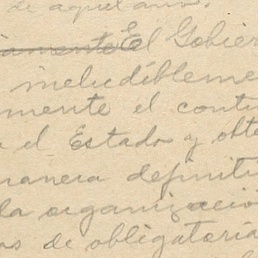 de aquel año.
El Gobier
ineludibleme
mente el contr
a el Estado y obte
manera definiti
la organización
as de obligatoria